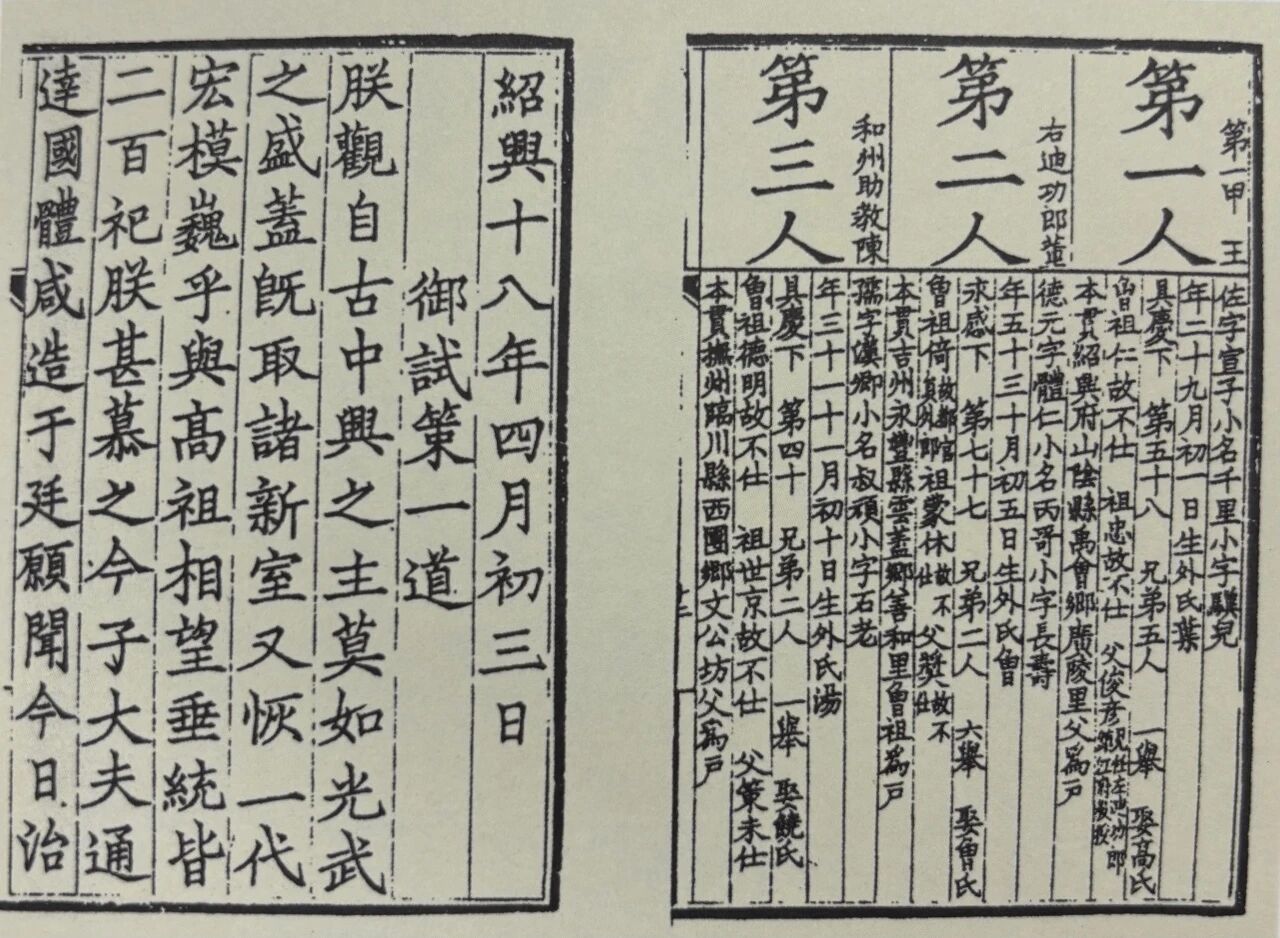 第一甲 王
第一人
佐字宣子小名千里小字驥兒
年二十九月初一日生外氏葉
具慶下 第五十八 兄弟五人 一舉 娶高氏
曾祖仁故不仕 祖忠故不仕 父俊彥見任左迪功郎鎮江府教授
本貫紹興府山陰縣禹會鄉廣陵里父爲戸
右迪功郎董
第二人
德元字體仁小名丙哥小字長壽
年五十三十月初五日生外氏曾
永感下 第七十七 兄弟二人 六舉 娶曾氏
曾祖倚故都官員外郎 祖蒙休故不仕 父奬故不仕
本貫吉州永豐縣雲蓋鄉善和里曾祖爲戸
和州助教陳
第三人
孺字漢卿小名叔頑小字石老
年三十一十一月初十日生外氏湯
具慶下 第四十 兄弟二人 一舉 娶饒氏
曾祖德明故不仕 祖世京故不仕 父策未仕
本貫撫州臨川縣西團鄉文公坊父爲戸
紹興十八年四月初三日
御試策一道
朕觀自古中興之主莫如光武
之盛蓋旣取諸新室又恢一代
宏模巍乎與高祖相望垂統皆
二百祀朕甚慕之今子大夫通
達國體咸造于廷願聞今日治